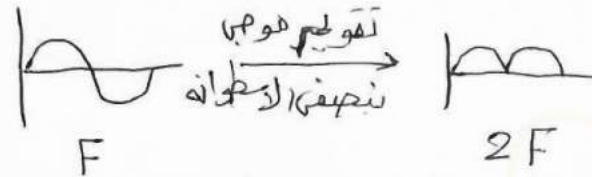 تقويم موجى
بنصفى الاسطوانه
F
2F